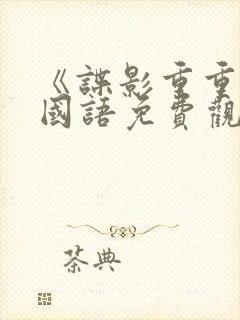 《諜影重重
國語免費觀
茶典